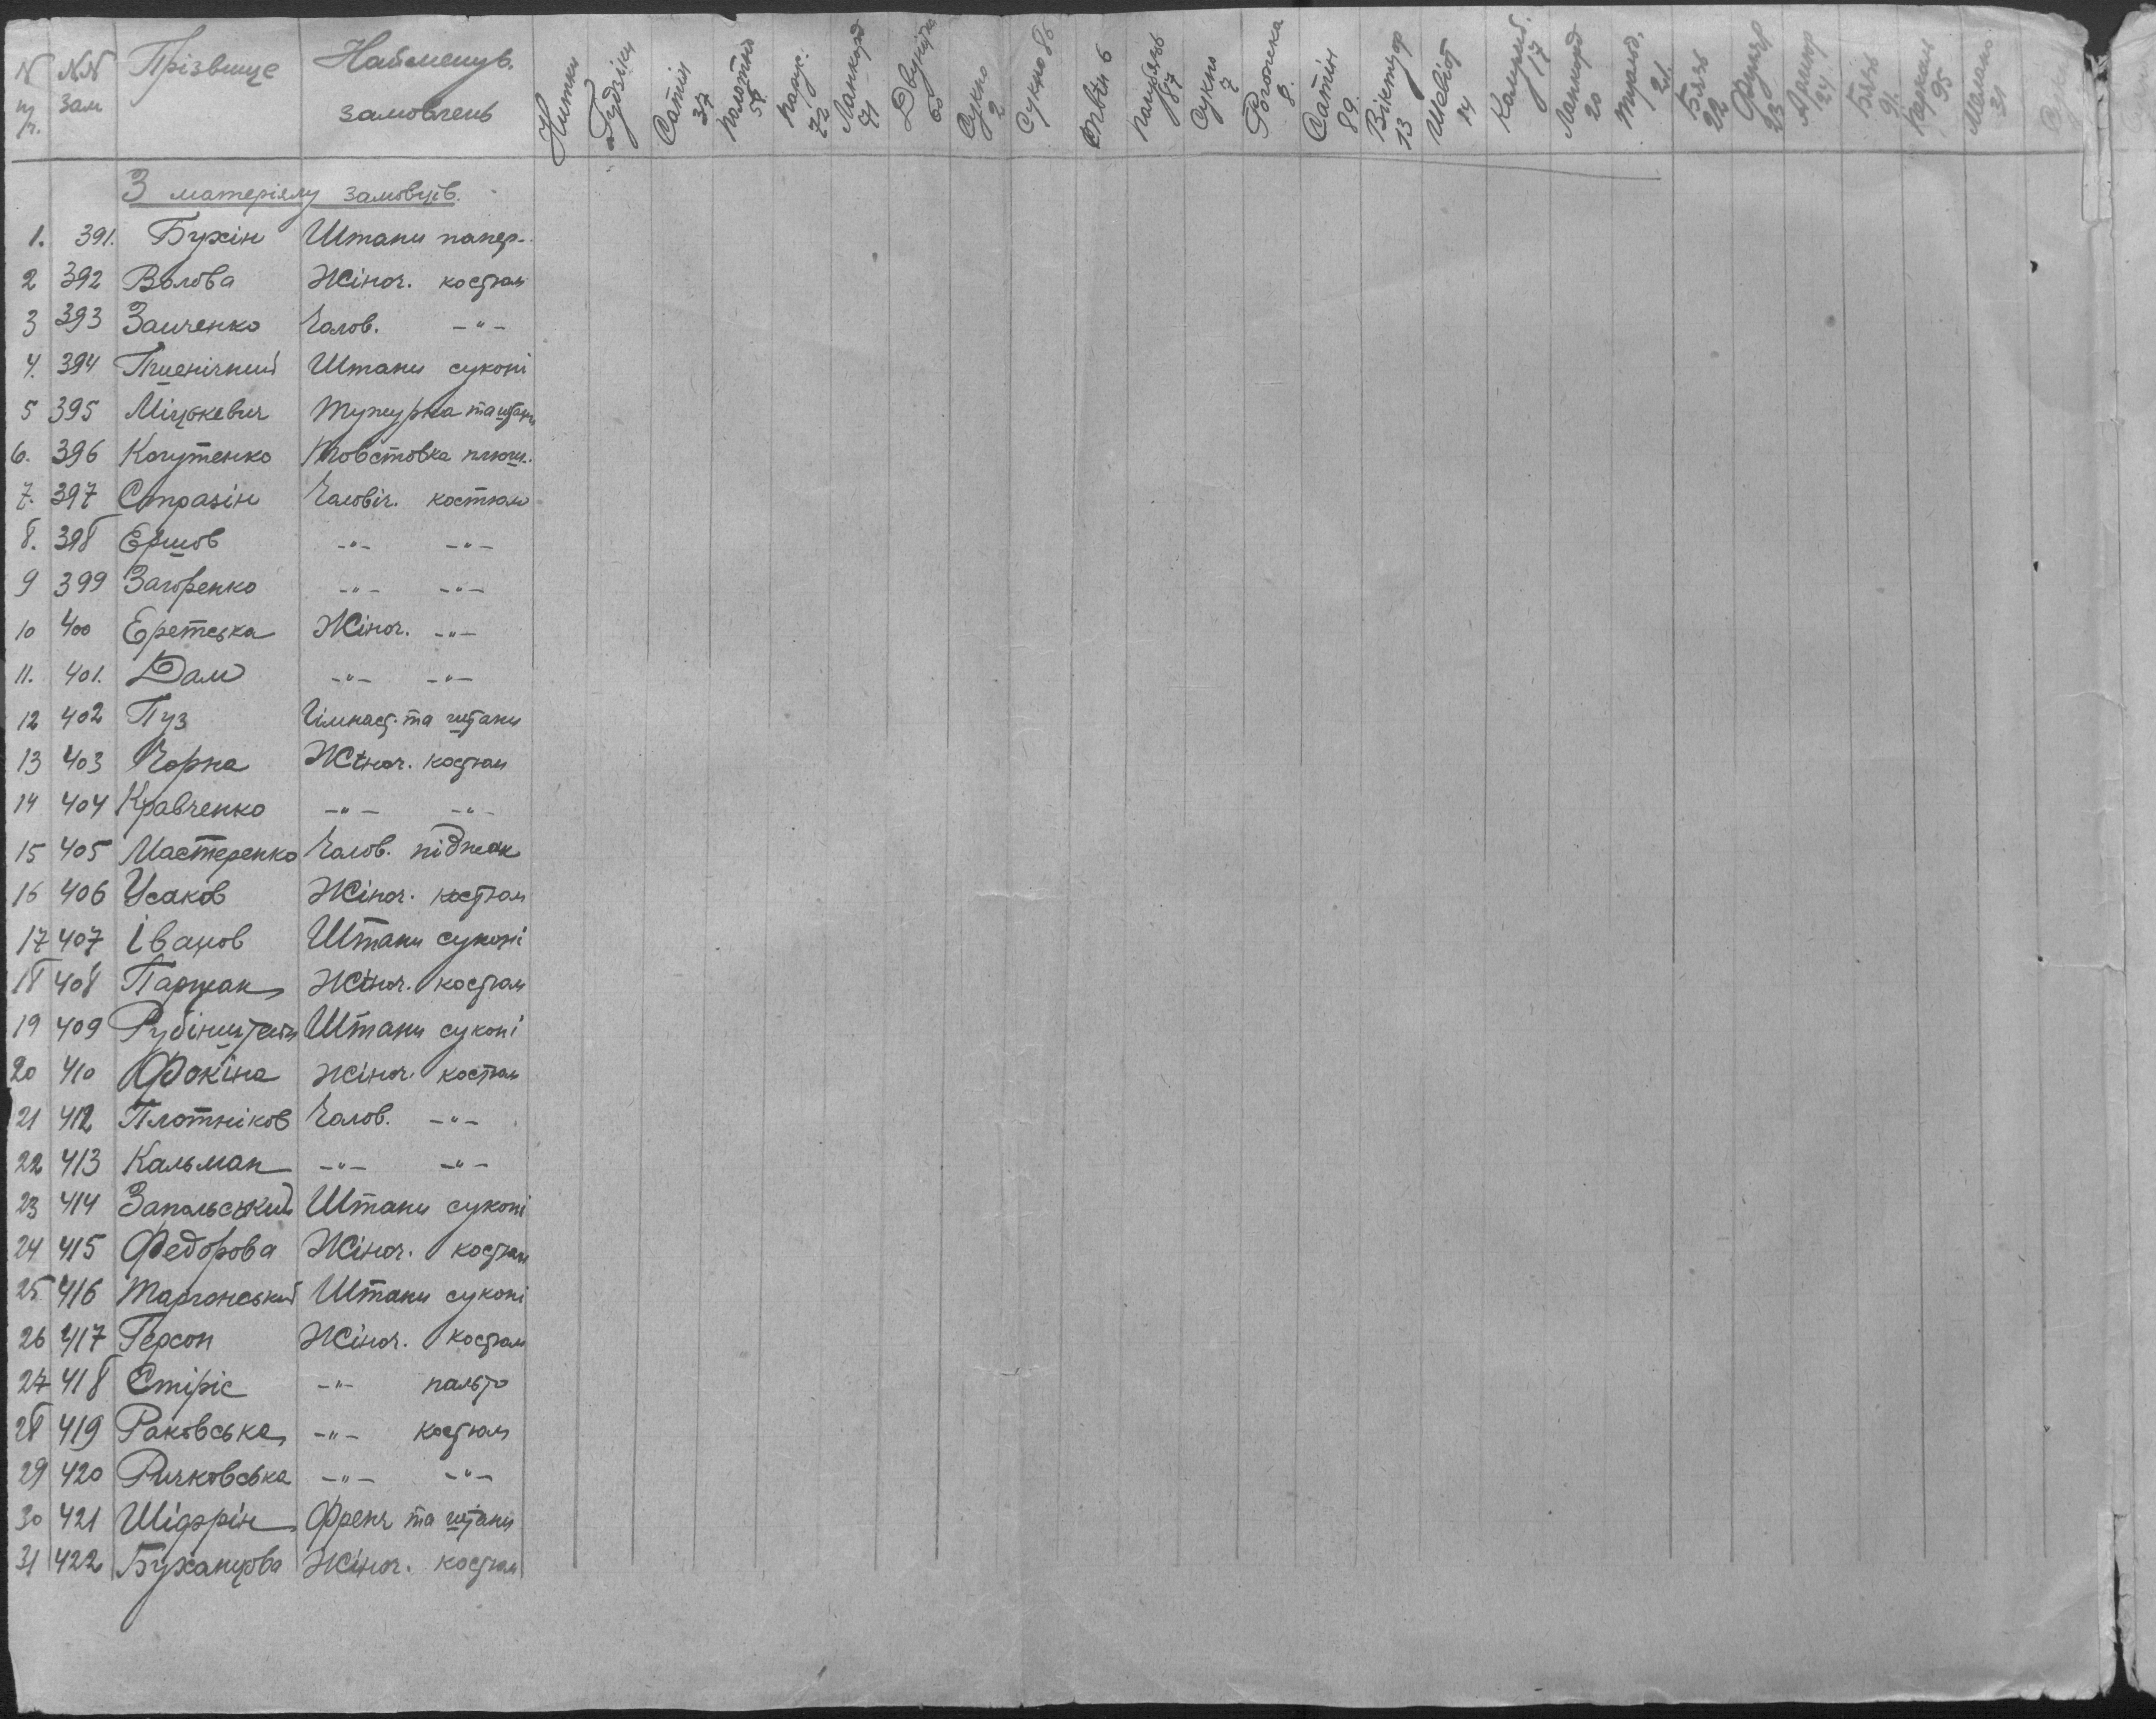 N п/п. NN зам Прізвище Найменув. замовлень Нитки Гудзіки Сатін 37 Полотно 58 Парус. 72 Ланкорд 71 Двуні 60 Сукно 2 Сукно 86 6 87 Сукно 7 Рогожка 8. Сатін 89. 13 Шевіот 14 17 Ланкорд 20 21. Бязь 22 23 24 Бязь 91. 95 31
З матеріялу замовців.
1. 391. Бухін Штани папер.
2 392 Волова Жіноч. костюм
3 393 Заиченко Чолов. -"-
4. 394 Пшенічний Штани суконі
5 395 Міцькевич Тужурка та штани
6. 396 Когутенко Товстовка плюш.
7. 397 Стразін Чоловіч. костюм
8. 398 Ершов -"- -"-
9 399 Загоренко -"- -"-
10 400 Еретська Жіноч. -"-
11. 401. Дам -"- -"-
12 402 Пуз Гімнаст. та штани
13 403 Чорна Жіноч. костюм
14 404 Кравченко -"- -"-
15 405 Мастеренко Чолов. піджак
16 406 Усаков Жіноч. костюм
17 407 Іванов Штани суконі
18 408 Паржак Жіноч. костюм
19 409 Рубінштейн Штани суконі
20 410 Фокіна Жіноч. костюм
21 412 Плотніков Чолов. -"-
22 413 Кальман -"- -"-
23 414 Запольський Штани суконі
24 415 Федорова Жіноч. костюм
25 416 Маргонський Штани суконі
26 417 Герсон Жіноч. костюм
27 418 Стіріс -"- пальто
28 419 Раковська -"- костюм
29 420 Ричковська -"- -"-
30 421 Шіфрін Френч та штани
31 422 Буханцова Жіноч. костюм